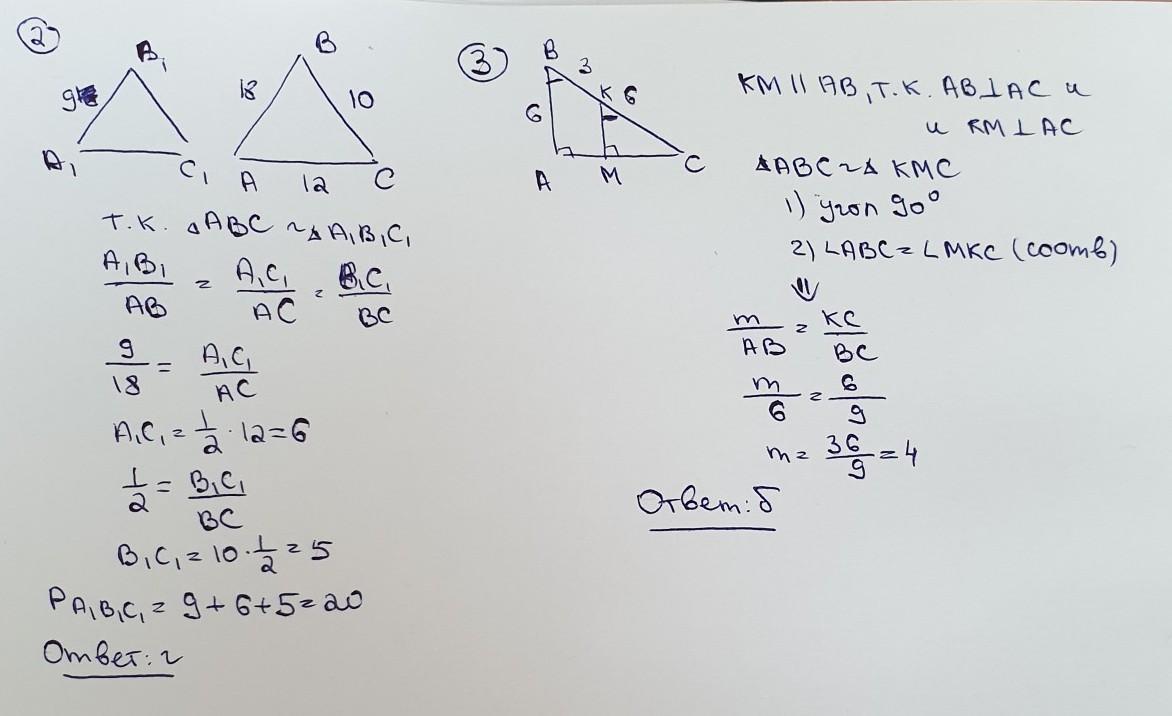 2
B₁
B
9
18
10
A₁
C₁
A
12
C
т.к. △ABC ~ △A₁B₁C₁
A₁B₁/AB = A₁C₁/AC = B₁C₁/BC
9/18 = A₁C₁/AC
A₁C₁ = 1/2 · 12 = 6
1/2 = B₁C₁/BC
B₁C₁ = 10 · 1/2 = 5
P A₁B₁C₁ = 9 + 6 + 5 = 20
Ответ: г
3
B
3
K 6
6
A
M
C
KM || AB, т.к. AB ⊥ AC и
и KM ⊥ AC
△ABC ~ △ KMC
1) угол 90°
2) ∠ABC = ∠MKC (соотв)
⇓
m/AB = KC/BC
m/6 = 6/9
m = 36/9 = 4
Ответ: б